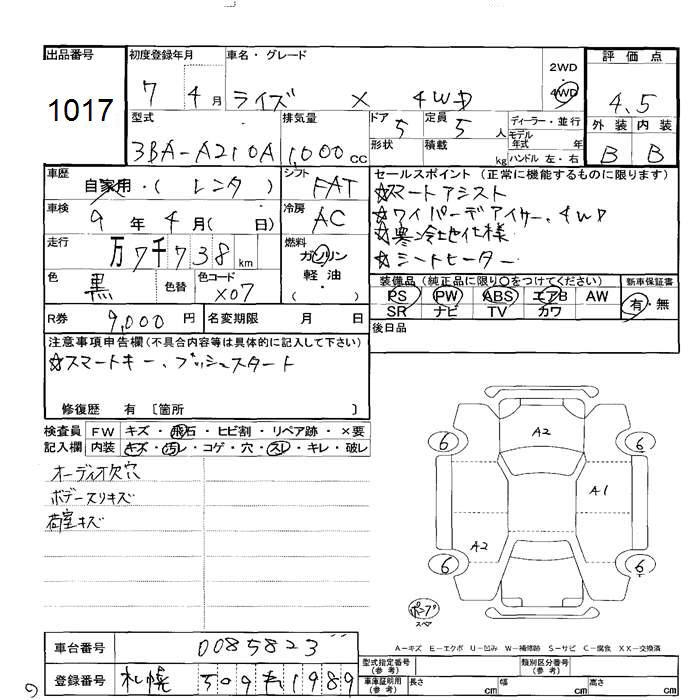 出品番号 1017
初度登録年月 7 4月
車名・グレード ライズ X 4WD
2WD 4WD
評価点 4.5
型式 3BA-A210A
排気量 1,000cc
ドア 5 定員 5人
形状 積載 kg
ディーラー・並行
モデル年式 年
ハンドル 左・右
外装 内装
B B
車歴 自家用・(レンタ)
シフト FAT
セールスポイント(正常に機能するものに限ります)
☆スマートアシスト
☆ワイパーデアイサー、4WD
☆寒冷地仕様
☆シートヒーター
車検 9年4月(日)
冷房 AC
走行 万7千738km
燃料 ガソリン
軽油・
(・)
色 黒 色替 色コード X07
装備品(純正品に限り○をつけてください) 新車保証書
PS PW ABS エアB AW 有・無
SR ナビ TV カワ
R券 9,000円 名変期限 月 日
後日品
注意事項申告欄(不具合内容等は具体的に記入して下さい)
☆スマートキー、プッシュスタート
修復歴 有 〔箇所 〕
検査員 FW キズ・飛石・ヒビ割・リペア跡・×要
記入欄 内装 キズ・汚レ・コゲ・穴・スレ・キレ・破レ
オーディオ欠穴
ボデースリキズ
荷室キズ
A2
6 6
A1
A2
6 6
スペア
A-キズ E-エクボ U-凹み W-補修跡 S-サビ C-腐食 XX-交換済
車台番号 0085823
型式指定番号(参考) 類別区分番号(参考)
登録番号 札幌 509 1989
車庫証明用(参考) 長さ cm 幅 cm 高さ cm